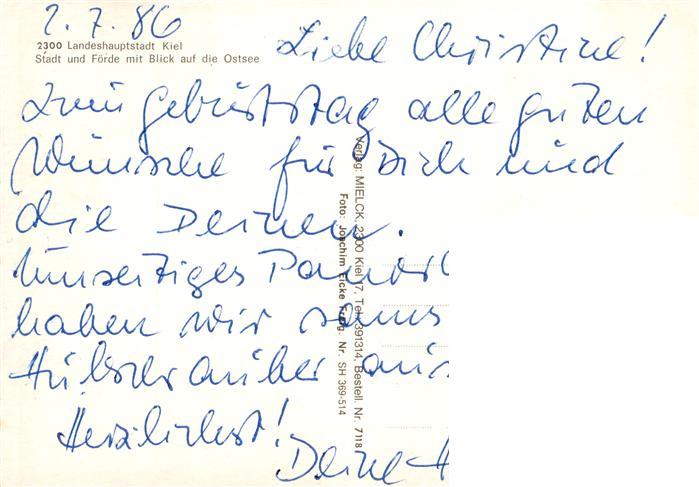 2.7.86
2300 Landeshauptstadt Kiel
Stadt und Förde mit Blick auf die Ostsee
Liebe Christine!
Zum Geburtstag alle guten
Wünsche für Dich und
die Deinen.
haben wir
Herzlichst!
Deine H
Verlag: MIELCK, 2300 Kiel 17, Tel. 391314, Bestell. Nr. 7118
Foto: Joachim Eicke Freig. Nr. SH 369-514